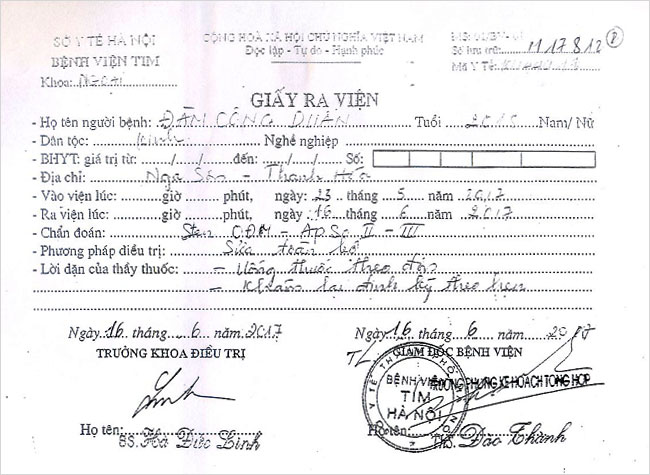 SỞ Y TẾ HÀ NỘI
BỆNH VIỆN TIM
Khoa: Ngoại
CỘNG HOÀ XÃ HỘI CHỦ NGHĨA VIỆT NAM
Độc lập - Tự do - Hạnh phúc
MS: 01/BV-01
Số lưu trữ: M 17812
Mã Y Tế
GIẤY RA VIỆN
- Họ tên người bệnh: ĐÀM CÔNG DUẨN Tuổi 2015 Nam/ Nữ
- Dân tộc: Kinh Nghề nghiệp
- BHYT: giá trị từ: / / đến: / / Số:
- Địa chỉ: Nga Sơn - Thanh Hóa
- Vào viện lúc: giờ phút, ngày: 23 tháng 5 năm 2017
- Ra viện lúc: giờ phút, ngày: 16 tháng 6 năm 2017
- Chẩn đoán: CĐM - APSO II - III
- Phương pháp điều trị: Sửa toàn bộ
- Lời dặn của thầy thuốc: - Uống thuốc theo đơn
- Khám lại định kỳ theo hẹn
Ngày 16 tháng 6 năm 2017
TRƯỞNG KHOA ĐIỀU TRỊ
Họ tên:
BS. Hà Đức Linh
Ngày 16 tháng 6 năm 2017
TL GIÁM ĐỐC BỆNH VIỆN
TRƯỞNG PHÒNG KẾ HOẠCH TỔNG HỢP
BỆNH VIỆN
TIM
HÀ NỘI
Họ tên:
ThS. Đào Thành